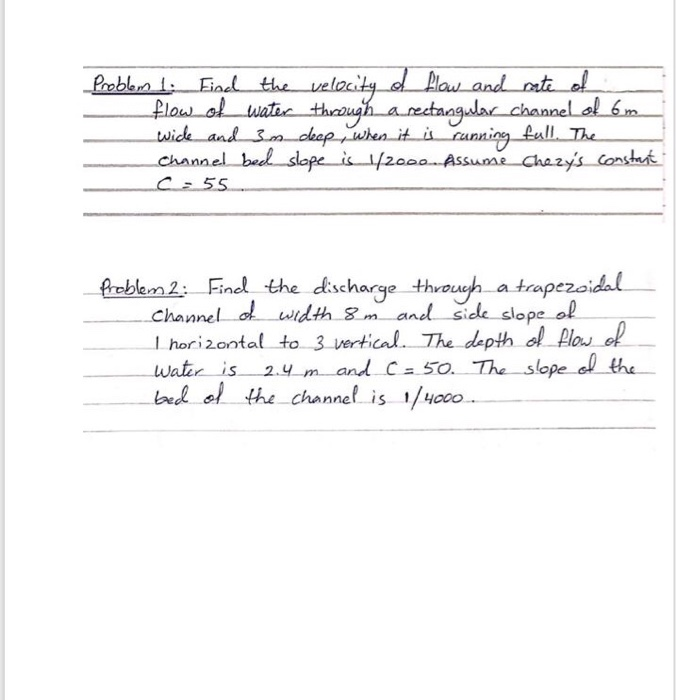 Problem 1: Find the velocity of flow and rate of
flow of water through a rectangular channel of 6m
wide and 3m deep, when it is running full. The
channel bed slope is 1/2000. Assume Chezy's constant
C = 55
Problem 2: Find the discharge through a trapezoidal
Channel of width 8 m and side slope of
1 horizontal to 3 vertical. The depth of flow of
water is 2.4 m and C = 50. The slope of the
bed of the channel is 1/4000.